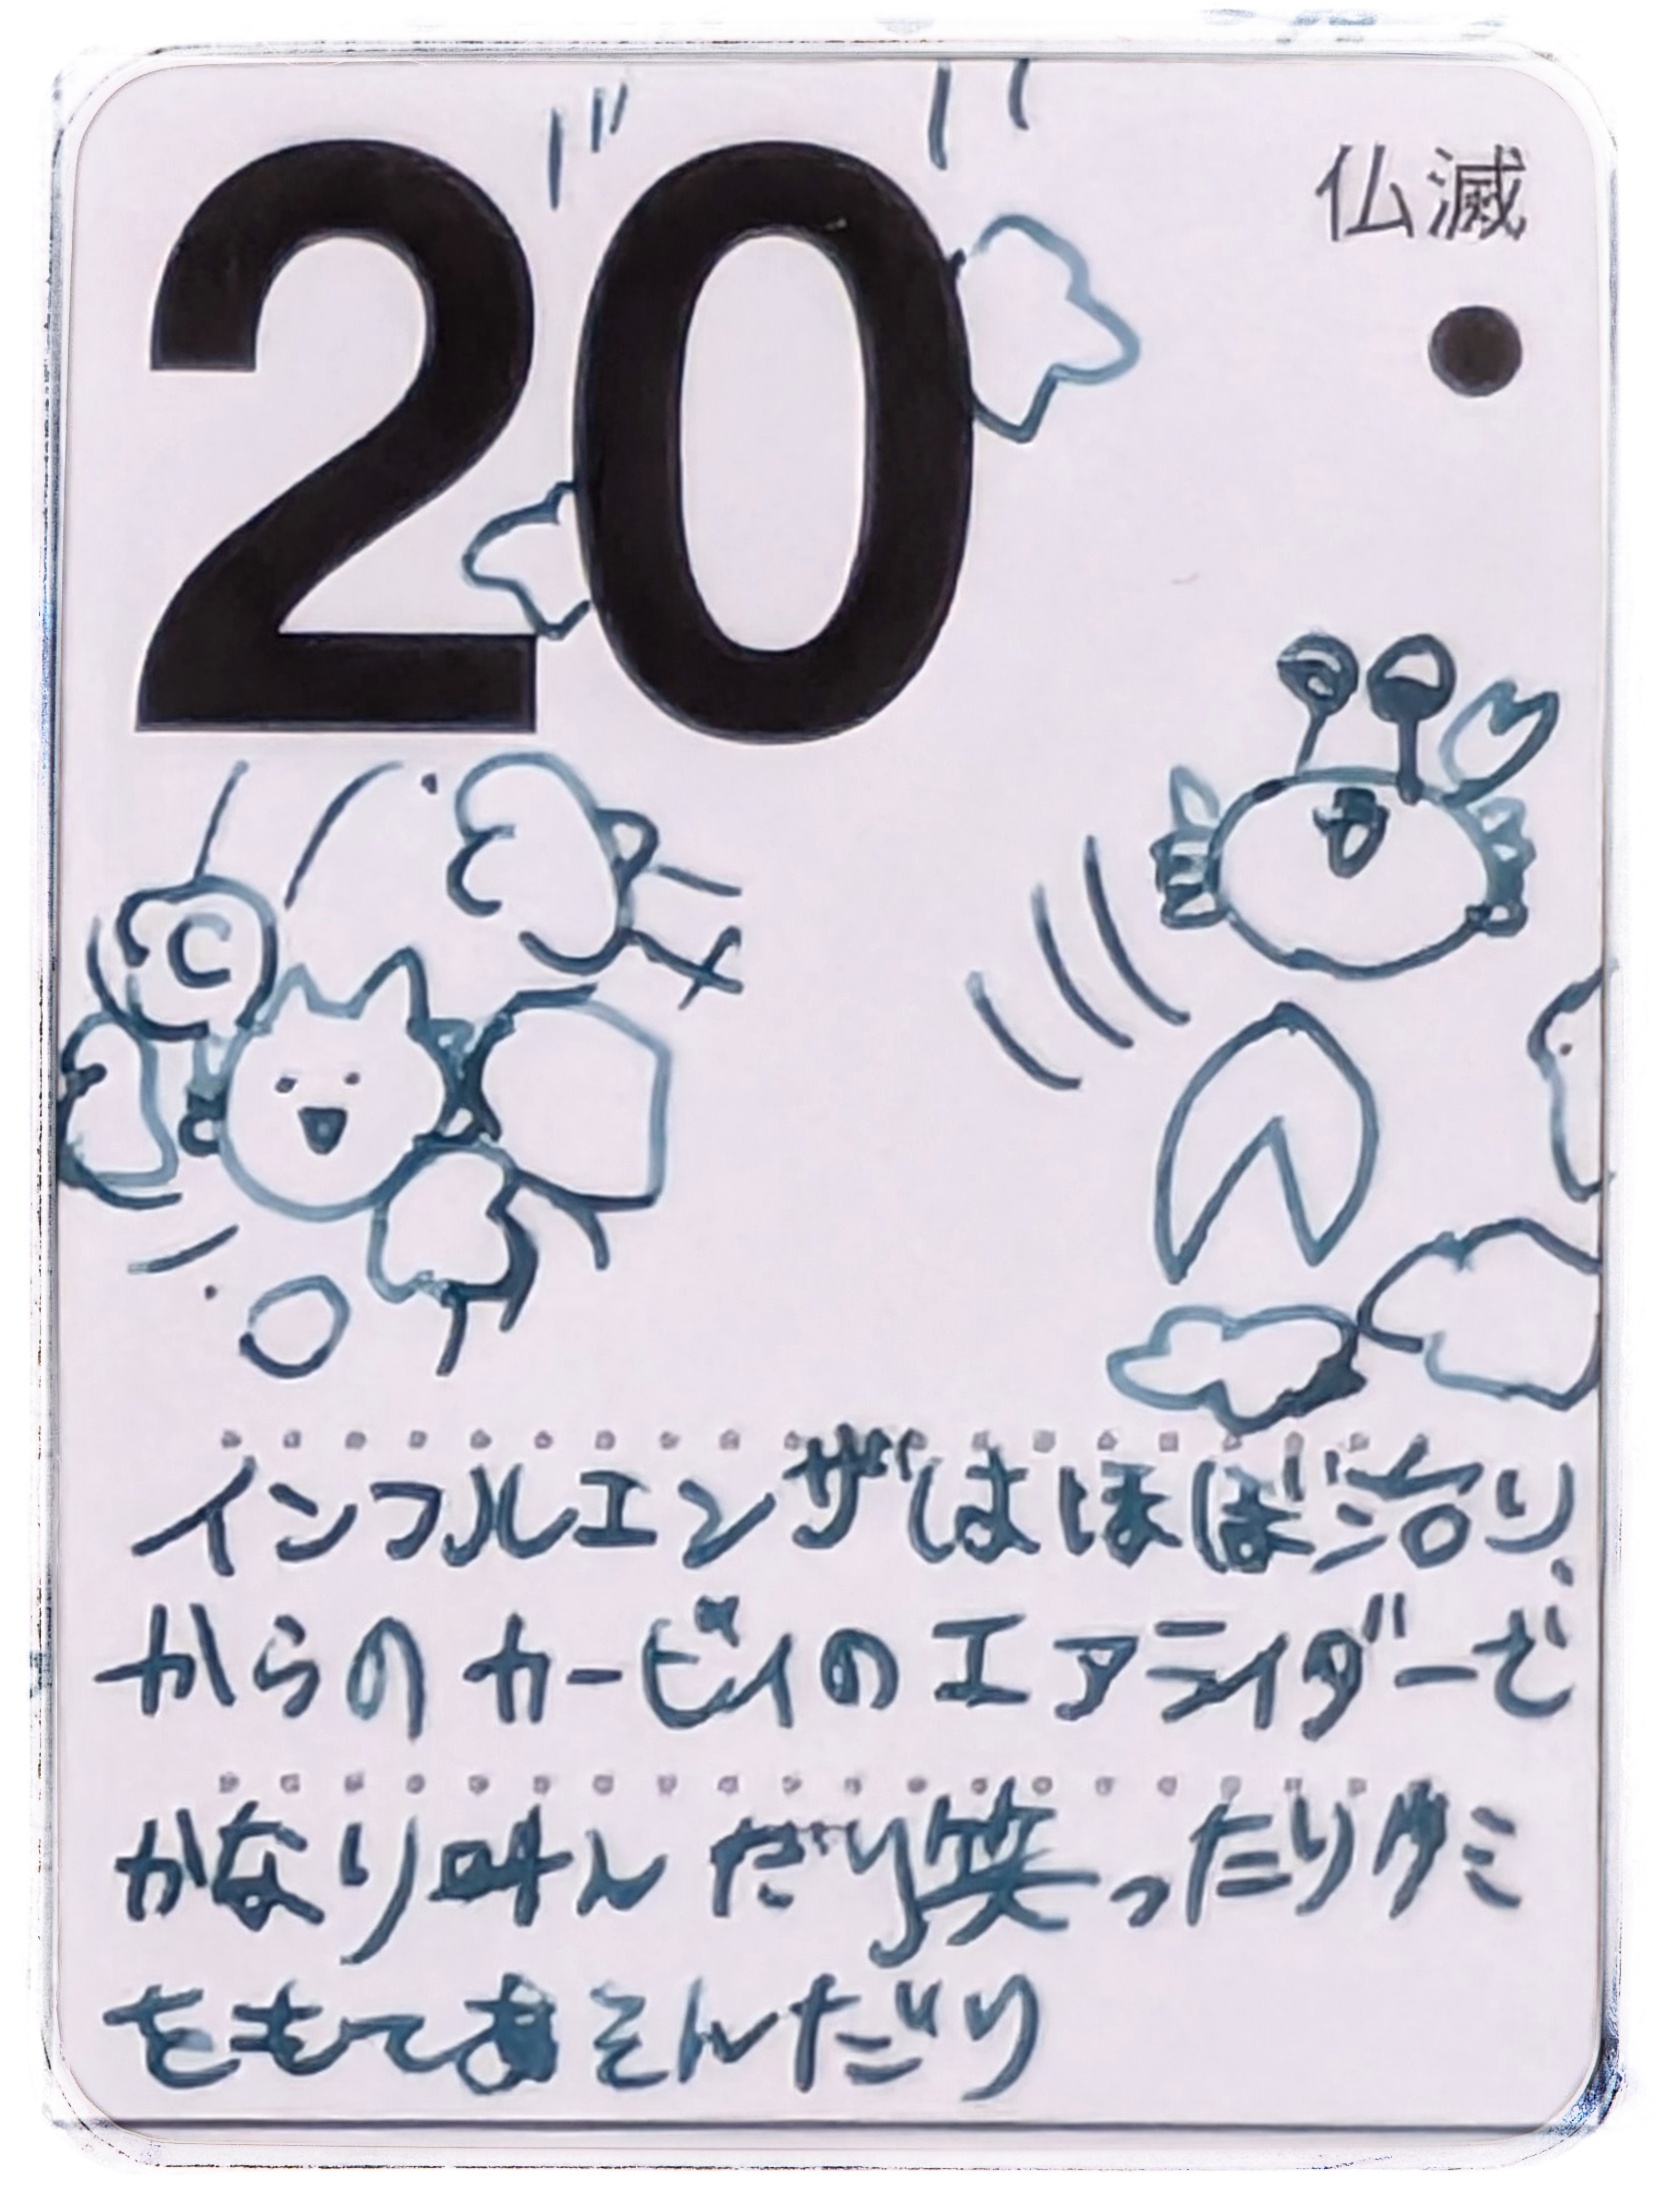 20
仏滅
インフルエンザはほぼ治り
からのカービィのエアライダーで
かなり叫んだり笑ったりウミ
をもてあそんだり